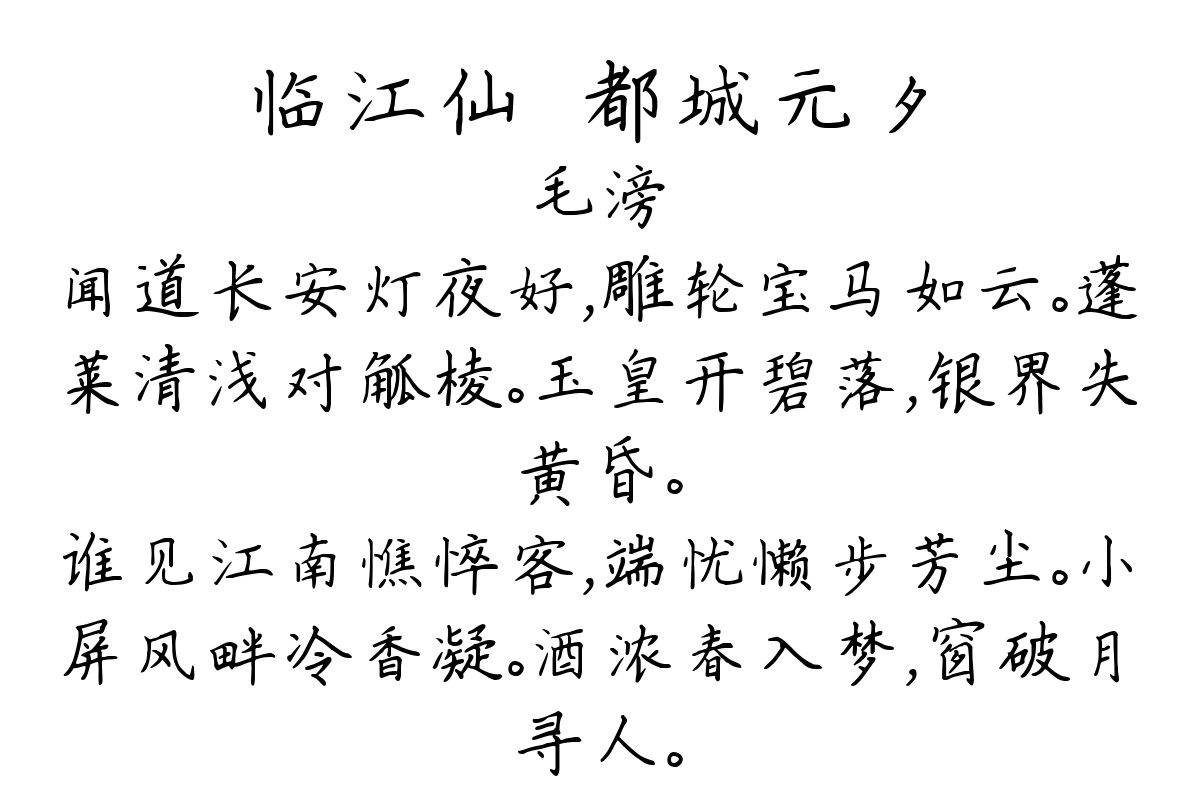 临江仙 都城元夕
毛滂
闻道长安灯夜好,雕轮宝马如云。蓬
莱清浅对觚棱。玉皇开碧落,银界失
黄昏。
谁见江南憔悴客,端忧懒步芳尘。小
屏风畔冷香凝。酒浓春入梦,窗破月
寻人。